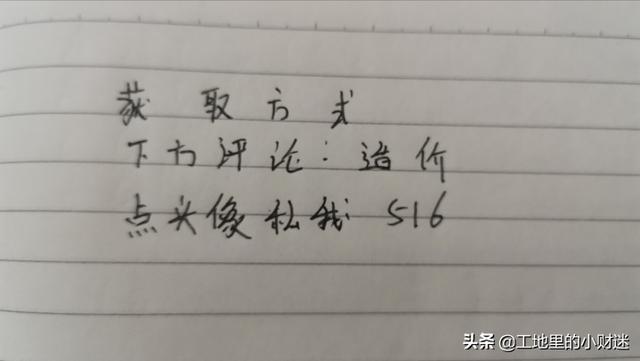 获取方式
下方评论：造价
点头像私我：516
头条 @工地里的小财迷